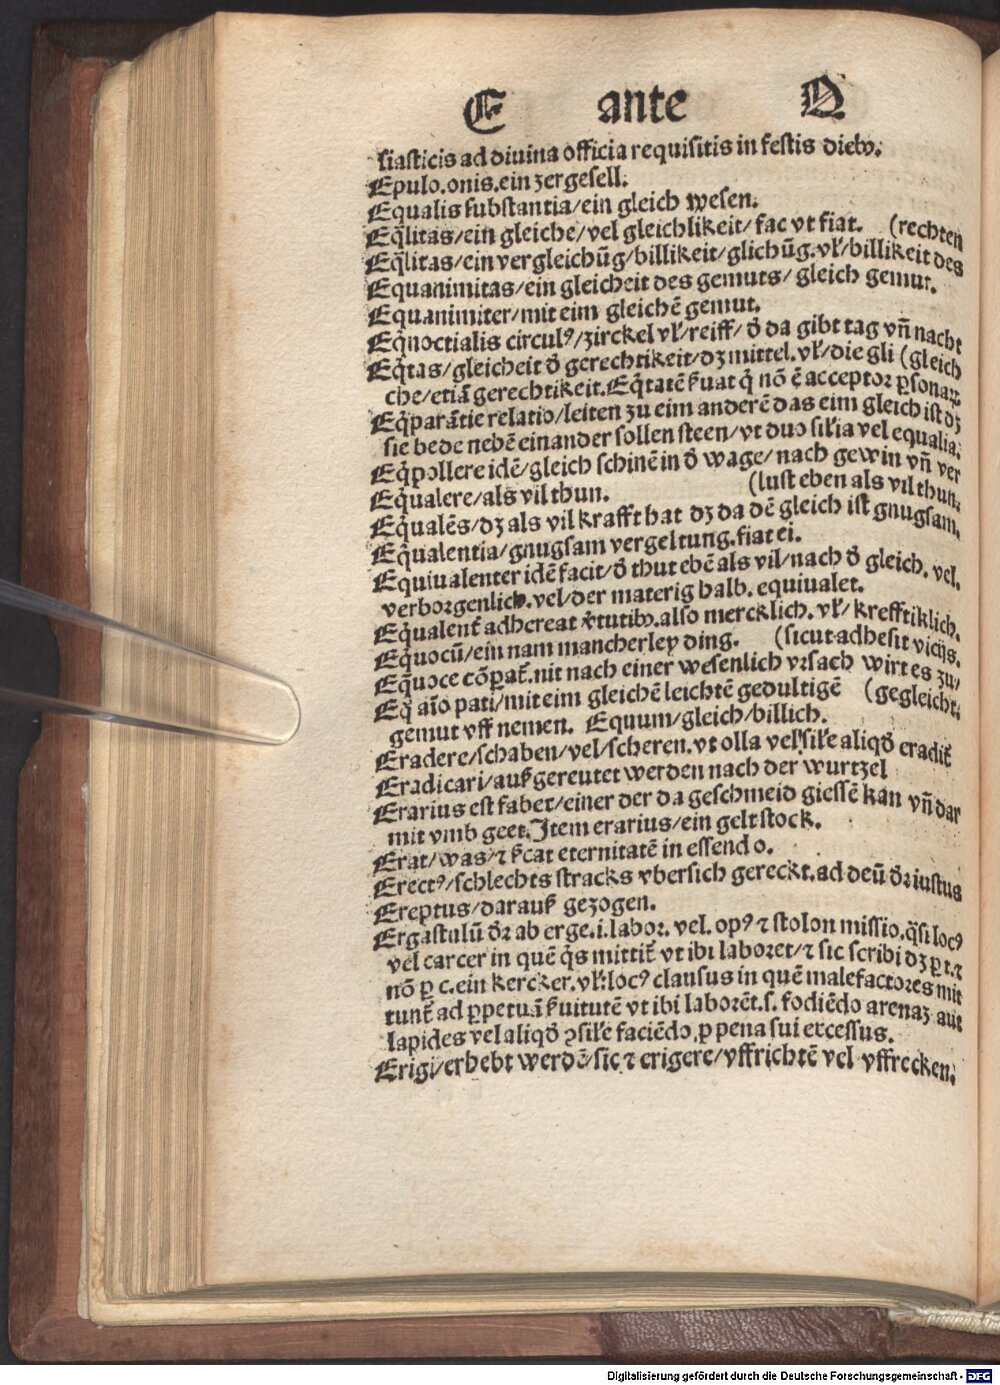 E ante Q
siasticis ad diuina officia requisitis in festis diebꝰ.
Epulo.onis.ein zergesell.
Equalis substantia/ein gleich wesen.
Eq̃litas/ein gleiche/vel gleichlikeit/fac vt fiat. (rechten
Eq̃litas/ein vergleichũg/billikeit/glichũg.vl̛/billikeit des
Equanimitas/ein gleicheit des gemuts/ gleich gemut.
Equanimiter/mit eim gleichẽ gemut.
Eq̃noctialis circulꝰ/zirckel vl̛/reiff/ ð da gibt tag vñ nacht
Eq̃tas/gleicheit ð gerechtikeit/dz mittel.vl̛/die gli (gleich
che/etiã gerechtikeit.Eq̃tatẽ ẜuat q̇ nõ ẽ acceptor ꝑsonaꝝ
Eq̃parãtie relatio/leiten zu eim anderẽ das eim gleich ist dz
sie bede nebẽ einander sollen steen/vt duo sil̛ia vel equalia.
Eq̃pollere idẽ/gleich schinẽ in ð wage/nach gewin vñ ver
Eq̃ualere/als vil thun. (lust eben als vil thun.
Eq̃ualẽs/dz als vil krafft hat dz da dẽ gleich ist gnugsam.
Eq̃ualentia/gnugsam vergeltung.fiat ei.
Equiualenter idẽ facit/ð thut ebẽ als vil/nach ð gleich.vel.
verborgenlich.vel/der materig halb.equiualet.
Eq̃ualent̛ adhereat v̛tutibꝰ.also mercklich.vl̛/krefftiklich.
Eq̃uocũ/ein nam mancherley ding. (sicut adhesit vicijs.
Eq̃uoce cõꝑat̛.nit nach einer wesenlich vrsach wirt es zu/
Eq̃ aĩo pati/mit eim gleichẽ leichtẽ gedultigẽ (gegleicht.
gemut vff nemen. Equum/gleich/billich.
Eradere/schaben/vel/scheren.vt olla vel sil̛e aliqð eradit̛
Eradicari/außgereutet werden nach der wurtzel
Erarius est faber/einer der da geschmeid giessẽ kan vñ dar
mit vmb geet.Item erarius/ein gelt stock.
Erat/was/⁊ ẜcat eternitatẽ in essendo.
Erectꝰ/schlechts stracks vbersich gereckt.ad deũ ðr iustus
Ereptus/darauß gezogen.
Ergastulũ ðr ab erge.i.labor.vel.opꝰ ⁊ stolon missio.q̃si locꝰ
vel carcer in quẽ q̇s mittit̛ vt ibi laboret/⁊ sic scribi dz ꝑ t.⁊
nõ ꝑ c.ein kercker.vl̛:locꝰ clausus in quẽ malefactores mit
tunt̛ ad ꝑpetuã ẜuitutẽ vt ibi laborẽt.s.fodiẽdo arenaz aut
lapides vel aliqð ꝯsil̛e faciẽdo.ꝓ pena sui excessus.
Erigi/erhebt werdẽ/sic ⁊ erigere/vffrichtẽ vel vffrecken.
Digitalisierung gefördert durch die Deutsche Forschungsgemeinschaft - DFG